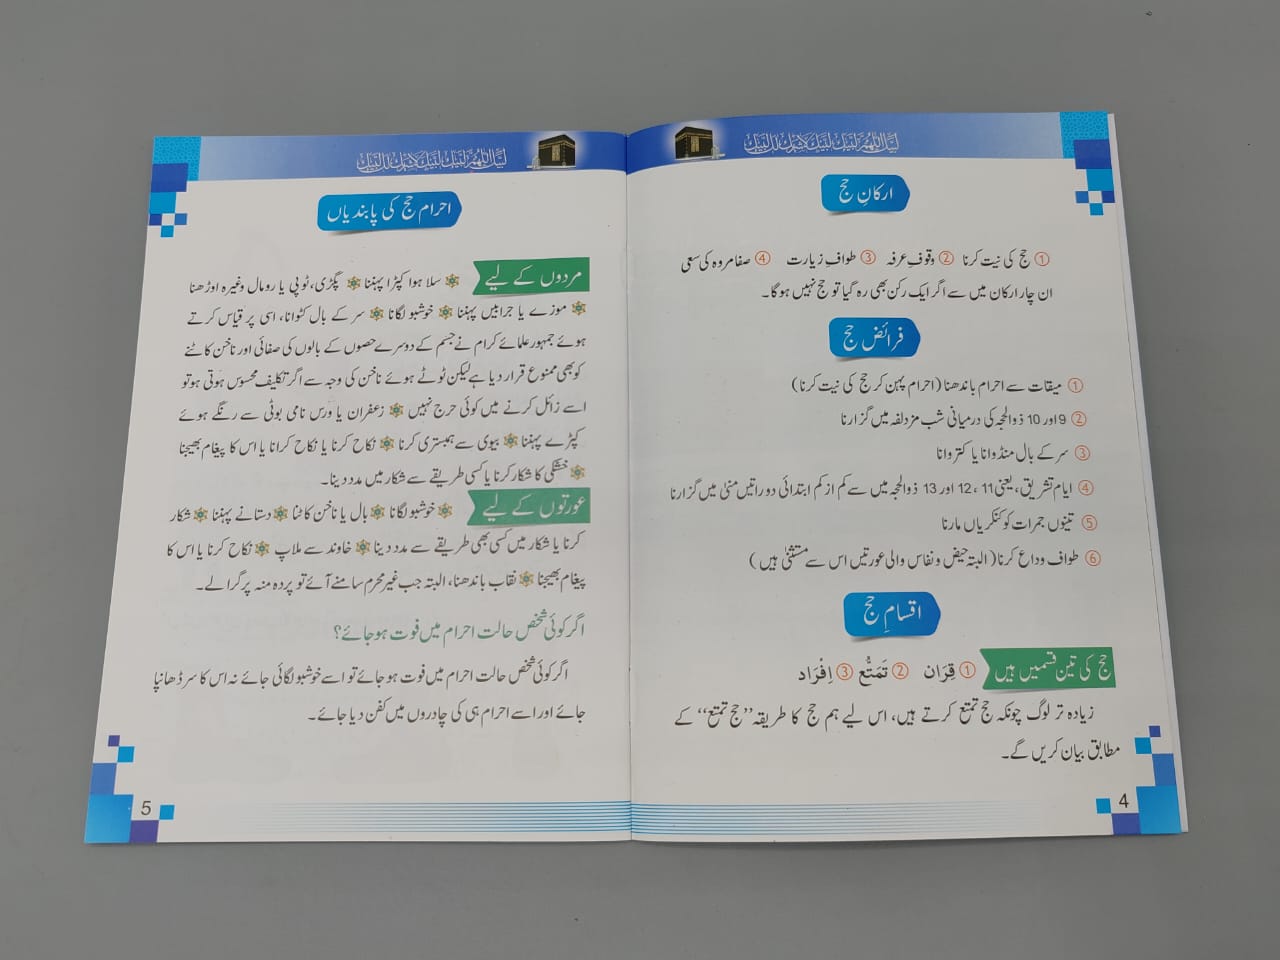 لبیک اللھم لبیک لبیک لا شریک لک لبیک
ارکانِ حج
① حج کی نیت کرنا ② وقوفِ عرفہ ③ طوافِ زیارت ④ صفا مروہ کی سعی
ان چار ارکان میں سے اگر ایک رکن بھی رہ گیا تو حج نہیں ہوگا۔
فرائضِ حج
① میقات سے احرام باندھنا (احرام پہن کر حج کی نیت کرنا)
② 9 اور 10 ذوالحجہ کی درمیانی شب مزدلفہ میں گزارنا
③ سر کے بال منڈوانا یا کتروانا
④ ایام تشریق، یعنی 11، 12 اور 13 ذوالحجہ میں سے کم از کم ابتدائی دو راتیں منیٰ میں گزارنا
⑤ تینوں جمرات کو کنکریاں مارنا
⑥ طواف وداع کرنا (البتہ حیض و نفاس والی عورتیں اس سے مستثنیٰ ہیں)
اقسامِ حج
حج کی تین قسمیں ہیں ① قِرَان ② تَمَتُّع ③ اِفْرَاد
زیادہ تر لوگ چونکہ حج تمتع کرتے ہیں، اس لیے ہم حج کا طریقہ ”حج تمتع“ کے
مطابق بیان کریں گے۔
4
لبیک اللھم لبیک لبیک لا شریک لک لبیک
احرام حج کی پابندیاں
مردوں کے لیے سلا ہوا کپڑا پہننا پگڑی، ٹوپی یا رومال وغیرہ اوڑھنا
موزے یا جرابیں پہننا خوشبو لگانا سر کے بال کٹوانا، اسی پر قیاس کرتے
ہوئے جمہور علمائے کرام نے جسم کے دوسرے حصوں کے بالوں کی صفائی اور ناخن کاٹنے
کو بھی ممنوع قرار دیا ہے لیکن ٹوٹے ہوئے ناخن کی وجہ سے اگر تکلیف محسوس ہوتی ہو تو
اسے زائل کرنے میں کوئی حرج نہیں زعفران یا ورس نامی بوٹی سے رنگے ہوئے
کپڑے پہننا بیوی سے ہمبستری کرنا نکاح کرنا یا نکاح کرانا یا اس کا پیغام بھیجنا
خشکی کا شکار کرنا یا کسی طریقے سے شکار میں مدد دینا۔
عورتوں کے لیے خوشبو لگانا بال یا ناخن کاٹنا دستانے پہننا شکار
کرنا یا شکار میں کسی بھی طریقے سے مدد دینا خاوند سے ملاپ نکاح کرنا یا اس کا
پیغام بھیجنا نقاب باندھنا، البتہ جب غیر محرم سامنے آئے تو پردہ منہ پر گرا لے۔
اگر کوئی شخص حالت احرام میں فوت ہو جائے؟
اگر کوئی شخص حالت احرام میں فوت ہو جائے تو اسے خوشبو لگائی جائے نہ اس کا سر ڈھانپا
جائے اور اسے احرام ہی کی چادروں میں کفن دیا جائے۔
5